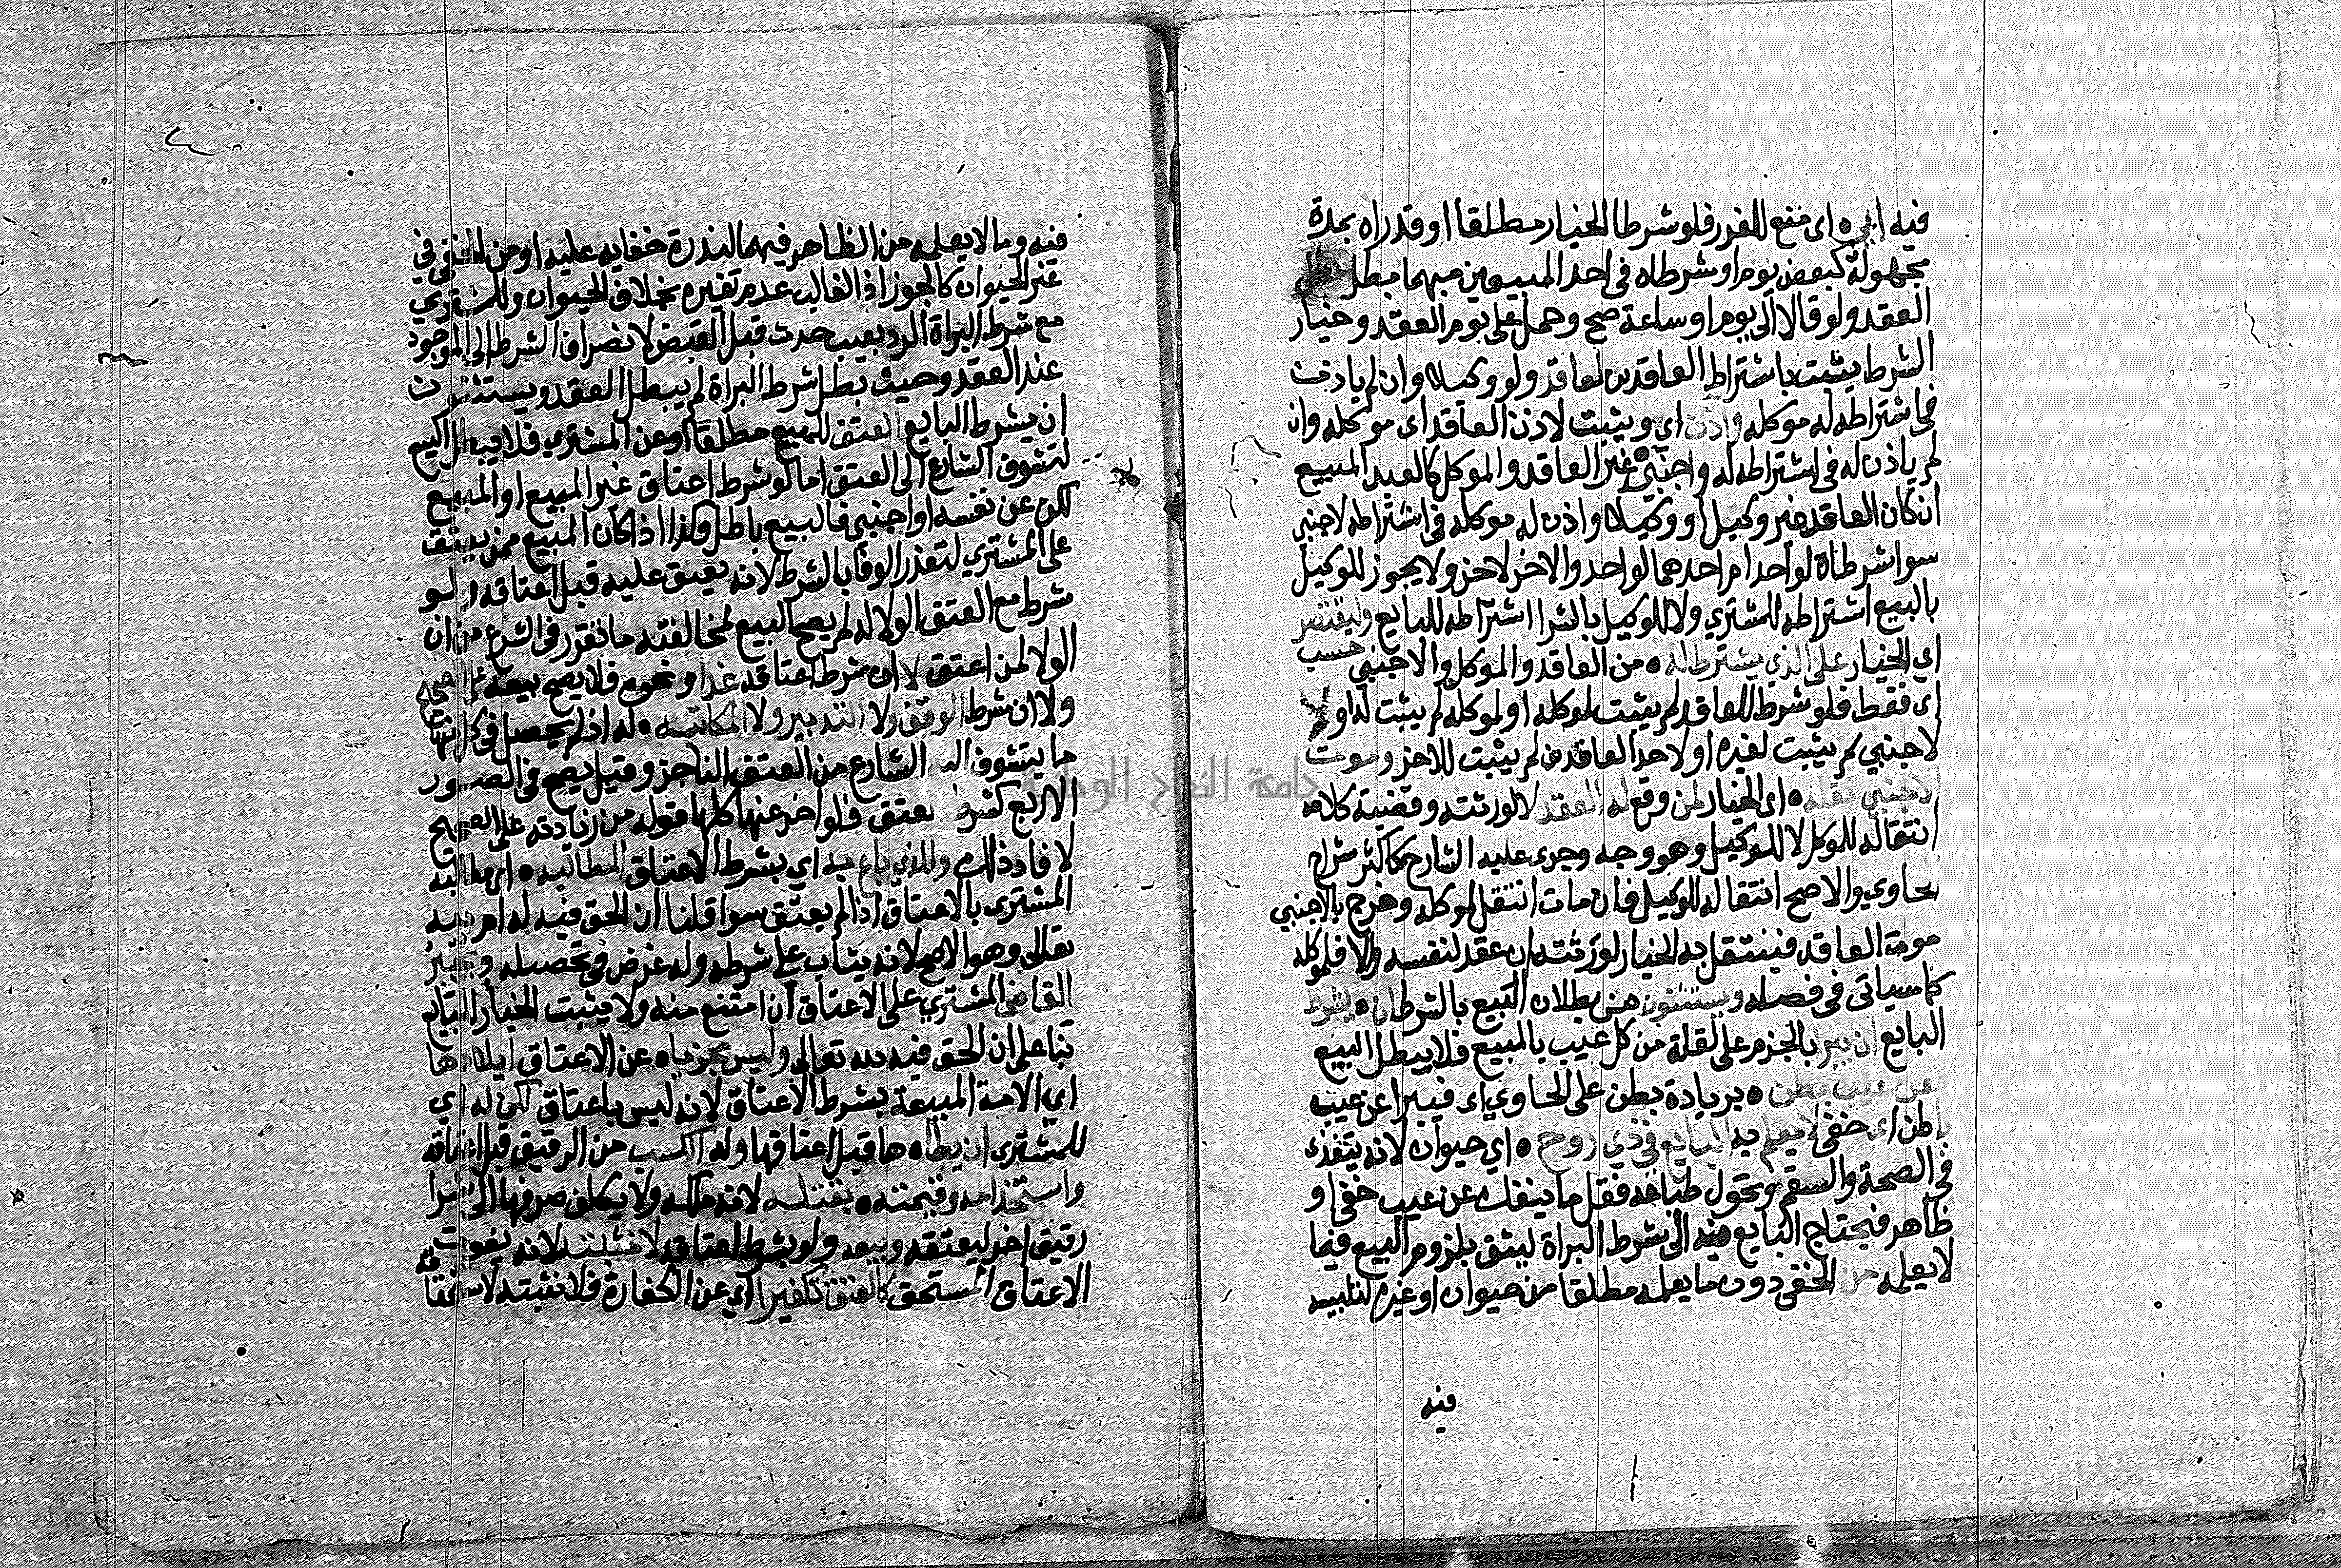 فيه ابي اى منع للغرر فلو شرطا الخيار مطلقا او قدراه بمدة
مجهولة كبعض يوم او شرطاه فى احد المبيعين مبهما بطل
العقد ولو قالا الى يوم او ساعة صح وحمل على يوم العقد وخيار
الشرط يثبت باشتراط العاقدين لعاقد ولو وكيلا وان لم ياذن
فى اشتراطه له موكله واذن اي ويثبت لاذن العاقد اى موكله وان
لم ياذن له فى اشتراطه له واجنبى غير العاقد والموكل كالعبد المبيع
ان كان العاقد غير وكيل او وكيلا واذن له موكله فى اشتراطه لاجنبي
سوا شرطاه لواحد ام احدهما لواحد والاخر لاخر ولا يجوز للوكيل
بالبيع اشتراطه للمشتري ولا للوكيل بالشرا اشتراطه للبايع وليقتصر
اي الخيار على الذي يشترط له من العاقد والموكل والاجنبي حسب
اى فقط فلو شرط للعاقد لم يثبت لموكله او لموكله لم يثبت له او
لاجنبي لم يثبت لغيره او لاحد العاقدين لم يثبت للاخر وموت
الاجنبي نقله اى الخيار لمن وقع له العقد لا لورثته وقضية كلامه
انتقاله للموكل لا للوكيل وهو وجه وجرى عليه الشارح كاكثر شراح
الحاوي والاصح انتقاله للوكيل فان مات انتقل لموكله وخرج بالاجنبي
موت العاقد فينتقل به الخيار لورثته ان عقد لنفسه والا فلموكله
كما سياتى فى فصله ويستثنون من بطلان البيع بالشرط ان يشرط
البايع ان يبرا بالجزم على لغة من كل عيب بالمبيع فلا يبطل البيع
عن عيب بطن بزيادة بطن على الحاوي اى فيبرا عن عيب
باطن اى خفى لا يعلم به البايع في ذي روح اي حيوان لانه يتغذى
فى الصحة والسقم وتحول طباعه فقل ما ينفك عن عيب خفى او
ظاهر فيحتاج البايع فيه الى شرط البراة ليثق بلزوم البيع فيما
لا يعلمه من الخفى دون ما يعلمه مطلقا من حيوان او غيره لتلبيسه
فيه
فيه وما لا يعلمه من الظاهر فيهما لندرة خفايه عليه او من الخفى في
غير الحيوان كالجوز اذ الغالب عدم تغيره بخلاف الحيوان وللمشتري
مع شرط البراة الرد بعيب حدث قبل القبض لانصراف الشرط الى الموجود
عند العقد وحيث بطل شرط البراة لم يبطل العقد ويستثنون
ان يشرط البايع العتق للمبيع مطلقا او عن المشتري فلا يبطل البيع
لتشوف الشارع الى العتق اما لو شرط اعتاق غير المبيع او المبيع
لكن عن نفسه او اجنبي فالبيع باطل وكذا اذا كان المبيع ممن يعتق
على المشتري لتعذر الوفا بالشرط لانه يعتق عليه قبل اعتاقه ولو
شرط مع العتق الولا له لم يصح البيع لمخالفته ما تقرر فى الشرع من ان
الولا لمن اعتق لا ان شرط اعتاقه غدا و نحوه فلا يصح بيعه على الصحيح
ولا ان شرط الوقف ولا التدبير ولا المكاتبة له اذ لم يحصل فى كل منها
ما يتشوف اليه الشارع من العتق الناجز وقيل يصح فى الصور
الاربع كشرط العتق فلو اخر عنها كلها قوله من زيادته على الصحيح
لافاد ذلك وللذي باع به اي بشرط الاعتاق المطالبه اى مطالبة
المشترى بالاعتاق اذا لم يعتق سوا قلنا ان الحق فيه له ام لله
تعالى وهو الاصح لانه يثاب على شرطه وله غرض فى تحصيله ويجبر
القاضى المشتري على الاعتاق ان امتنع منه ولا يثبت الخيار للبايع
بنا على ان الحق فيه لله تعالى وليس بمجزياه عن الاعتاق ايلادها
اي الامة المبيعة بشرط الاعتاق لانه ليس باعتاق لكن له اي
للمشترى ان يطاها قبل اعتاقها وله اكسب من الرقيق قبل اعتاقه
واستخدامه وقيمته بقتله لانه ملكه ولا يكلف صرفها الى شرا
رقيق اخر ليعتقه وبيعه ولو بشرط اعتاقه لا نثبته لانه يفوت
الاعتاق المستحق كالعتق تكفيرا اي عن الكفارة فلا نثبته لاستحقاقه